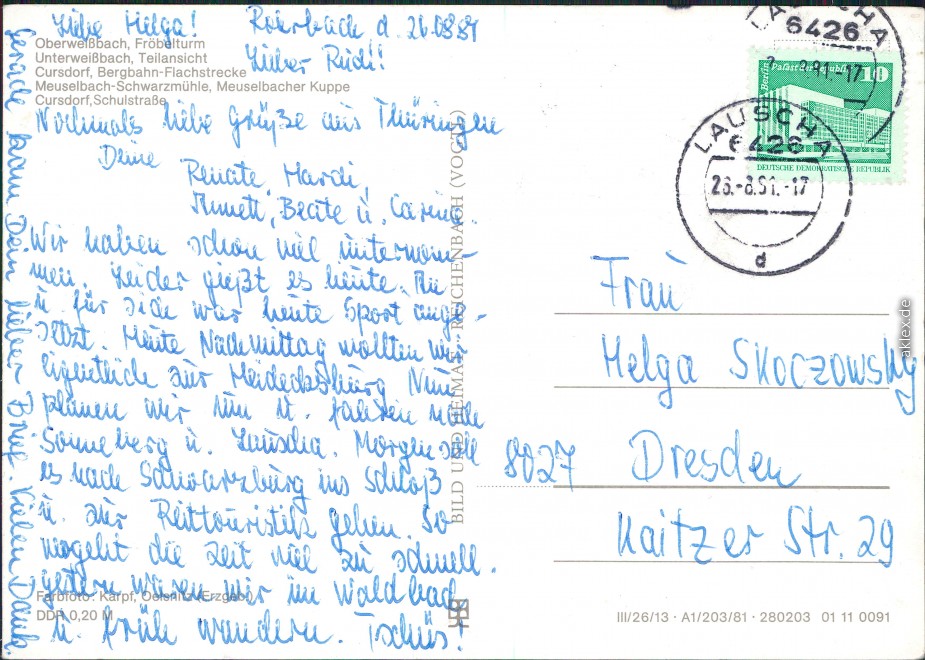 Liebe Helga! Rohrbach d. 26.08.81
Lieber Rudi!!
Oberweißbach, Fröbelturm
Unterweißbach, Teilansicht
Cursdorf, Bergbahn-Flachstrecke
Meuselbach-Schwarzmühle, Meuselbacher Kuppe
Cursdorf, Schulstraße
Nochmals liebe Grüße aus Thüringen
Deine
Renate, Mardi,
Annett, Beate u. Carina.
Wir haben schon viel unternom-
men. Leider gießt es heute. An
u. für sich war heute Sport ange-
setzt. Heute Nachmittag wollten wir
eigentlich zur Heidecksburg. Nun
planen wir um u. fahren nach
Sonneberg u. Lauscha. Morgen soll
es nach Schwarzburg ins Schloß
u. zur Reittouristik gehen. So
vergeht die Zeit viel zu schnell.
Gestern waren wir im Waldbad
u. früh wandern. Tschüs!
Gerade kam Dein lieber Brief. Vielen Dank.
Farbfoto: Karpf, Oelsnitz (Erzgeb.)
DDR 0,20 M
BILD UND HEIMAT REICHENBACH (VOGTL)
LAUSCHA
6426
8.91.-17
Berlin Palast der Republik
10
DEUTSCHE DEMOKRATISCHE REPUBLIK
LAUSCHA
6426
26.-8.91.-17
d
Frau
Helga Skoczowsky
8027 Dresden
Kaitzer Str. 29
III/26/13 · A1/203/81 · 280203 01 11 0091
aklex.de